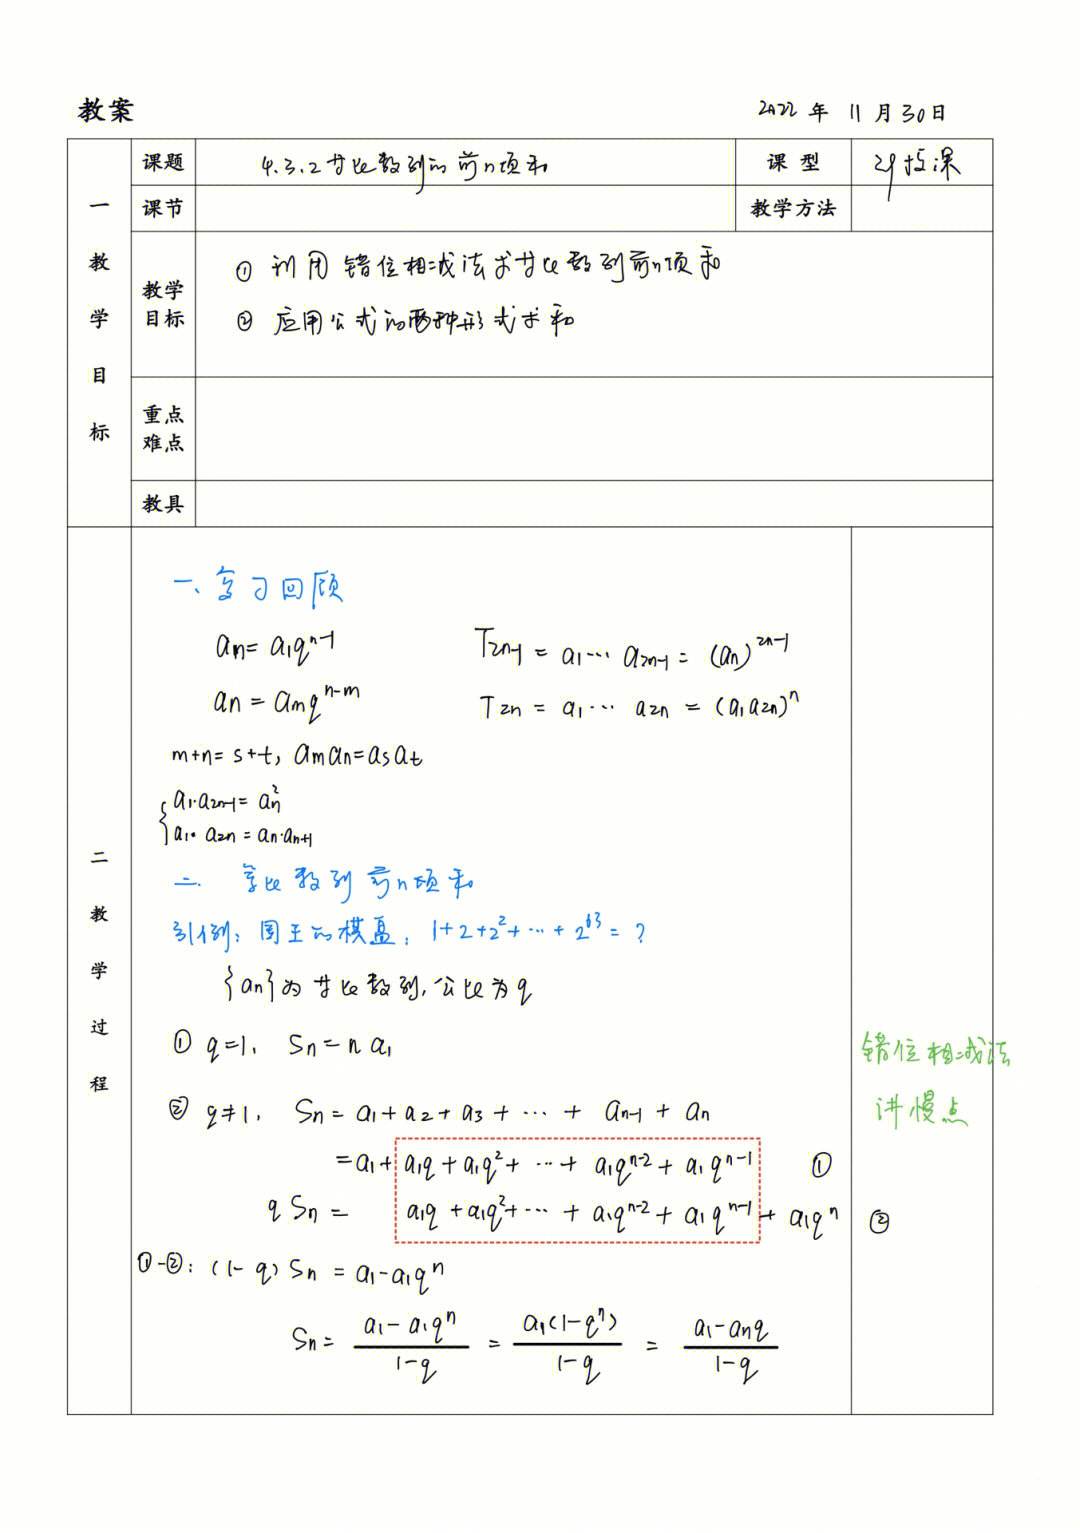 教案 2022 年 11 月 30 日
课题 4.3.2 等比数列的前n项和 课型 新授课
一 课节 教学方法
教学目标 教学目标 ① 利用错位相减法求等比数列前n项和
② 应用公式的两种形式求和
重点难点
教具
一、复习回顾
aₙ = a₁qⁿ⁻¹ T₂ₙ₋₁ = a₁⋯ a₂ₙ₋₁ = (aₙ)²ⁿ⁻¹
aₙ = aₘqⁿ⁻ᵐ T₂ₙ = a₁⋯ a₂ₙ = (a₁a₂ₙ)ⁿ
m+n=s+t, aₘaₙ=aₛaₜ
{ a₁·a₂ₙ₋₁ = aₙ²
a₁·a₂ₙ = aₙ·aₙ₊₁
二 教学过程
二. 等比数列前n项和
引例: 国王的棋盘: 1+2+2²+⋯+2⁶³=?
{aₙ}为等比数列, 公比为q
① q=1, Sₙ=na₁
错位相减法
讲慢点
② q≠1, Sₙ = a₁+a₂+a₃+⋯+aₙ₋₁+aₙ
=a₁+a₁q+a₁q²+⋯+a₁qⁿ⁻²+a₁qⁿ⁻¹ ①
qSₙ = a₁q+a₁q²+⋯+a₁qⁿ⁻²+a₁qⁿ⁻¹+a₁qⁿ ②
①-②: (1-q)Sₙ = a₁-a₁qⁿ
Sₙ = (a₁-a₁qⁿ)/(1-q) = a₁(1-qⁿ)/(1-q) = (a₁-aₙq)/(1-q)